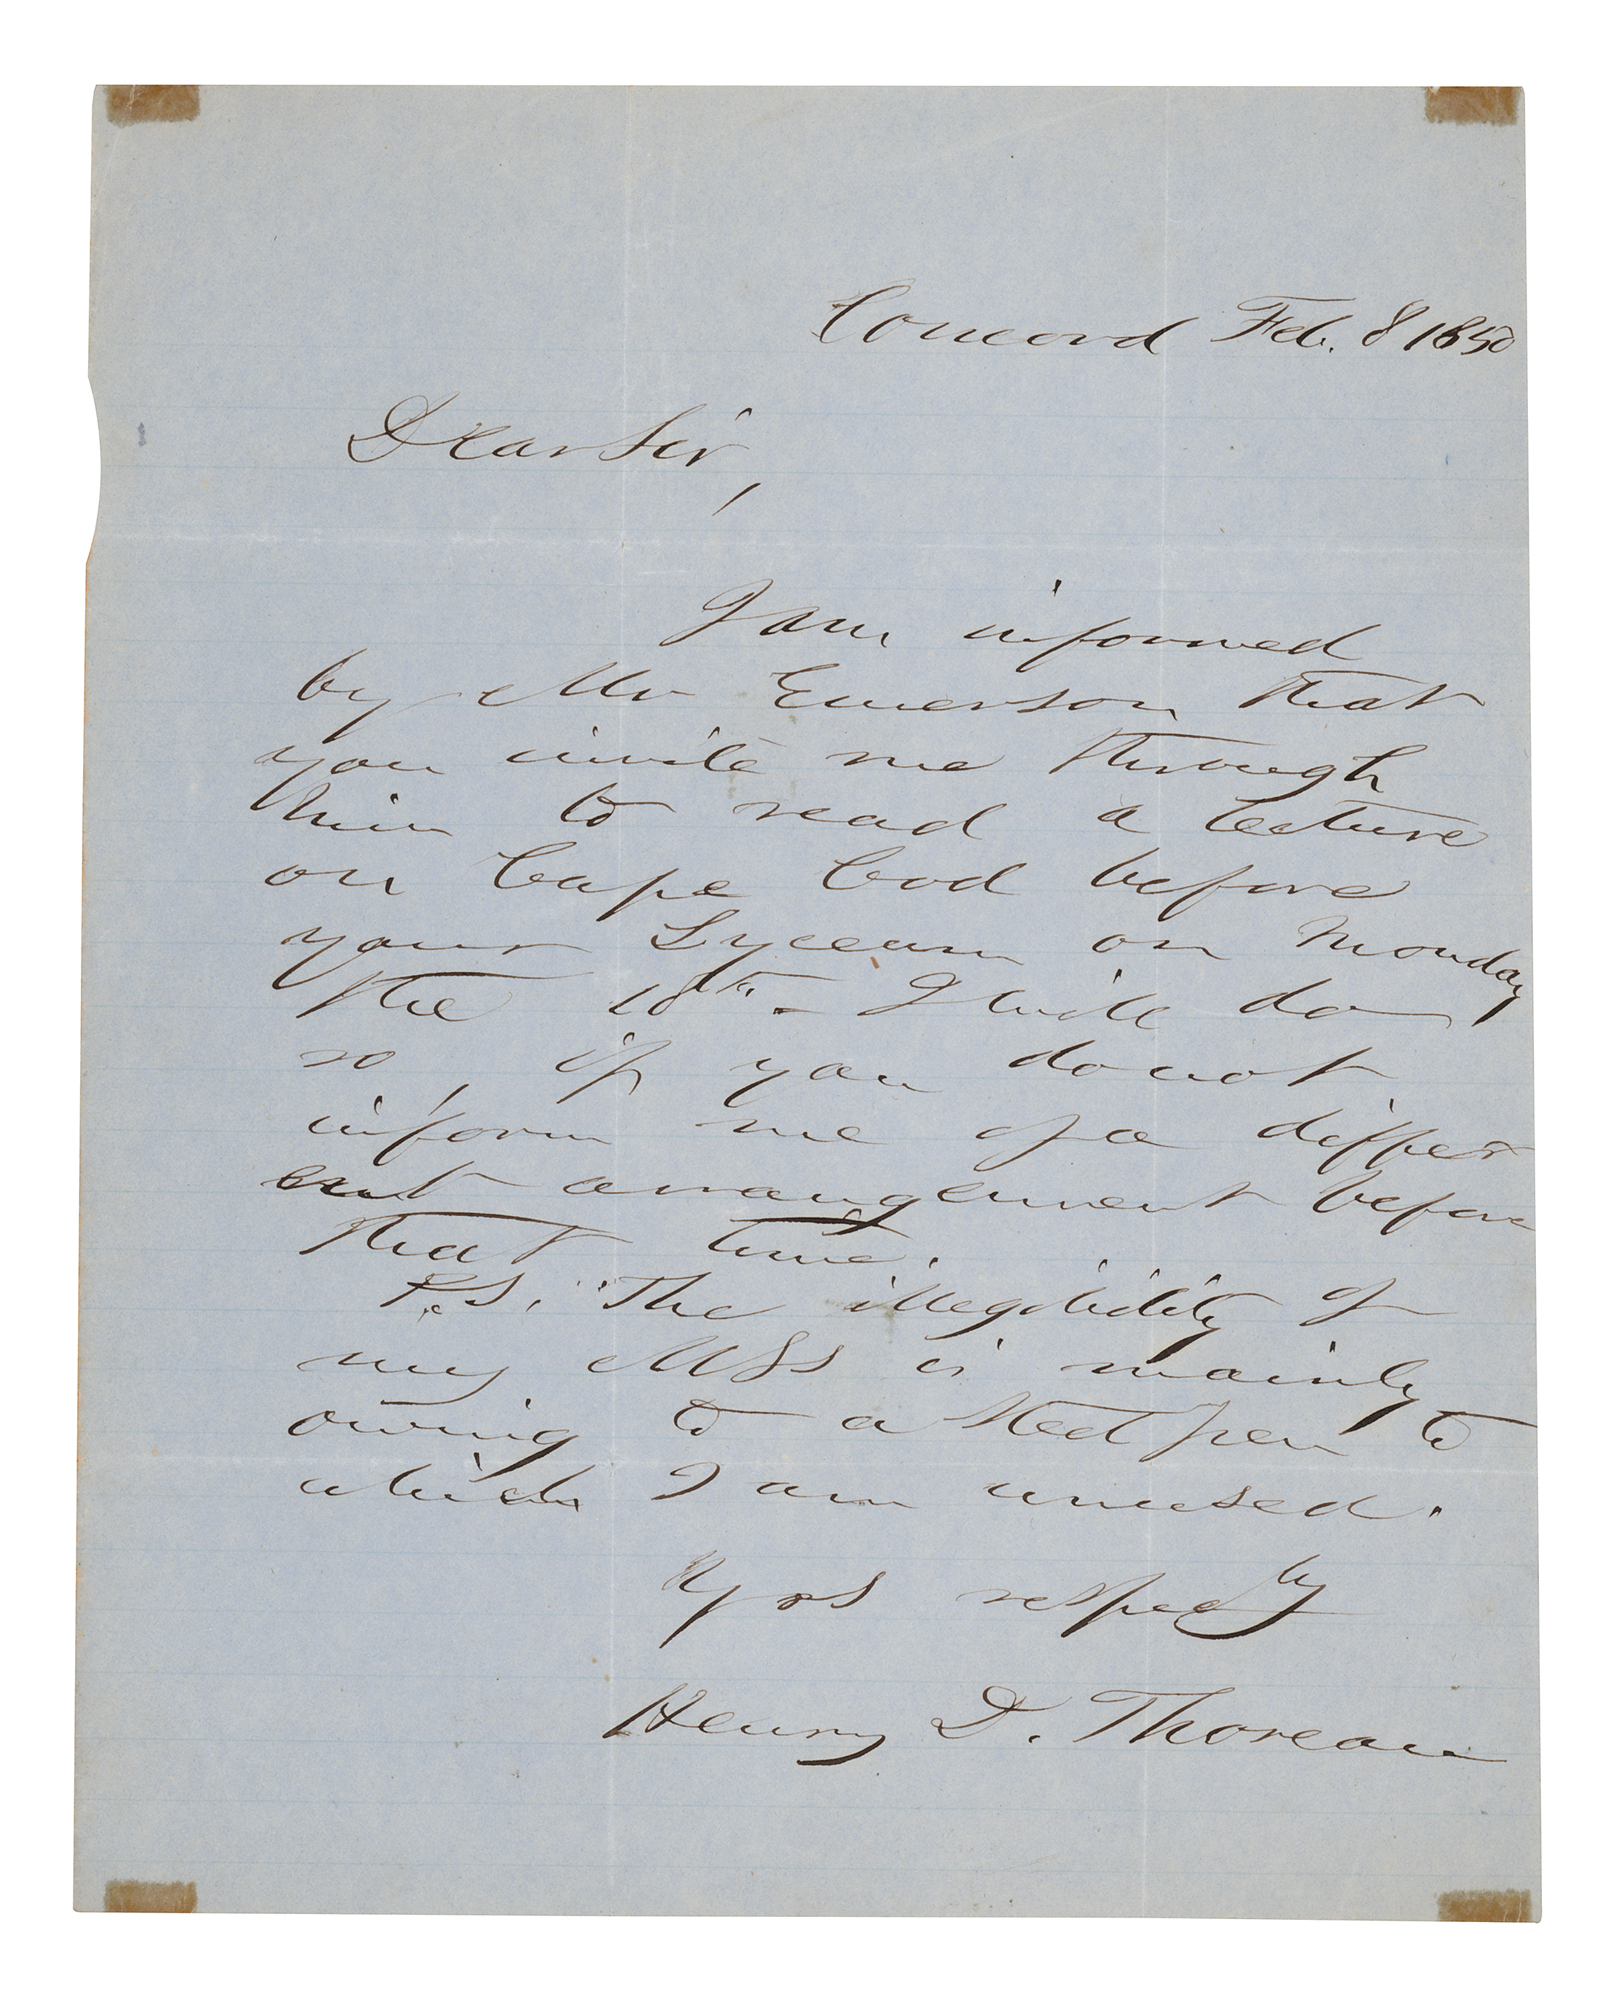 Concord Feb. 8 1850
Dear Sir,
I am informed
by Mr Emerson that
you invite me through
him to read a lecture
on Cape Cod before
your Lyceum on Monday
the 18th - I will do
so, if you do not
inform me of a differ
ent arrangement before
that time.
P.S. The illegibility of
my MSS is mainly
owing to a steel pen to
which I am unused.
Yrs respectly
Henry D. Thoreau